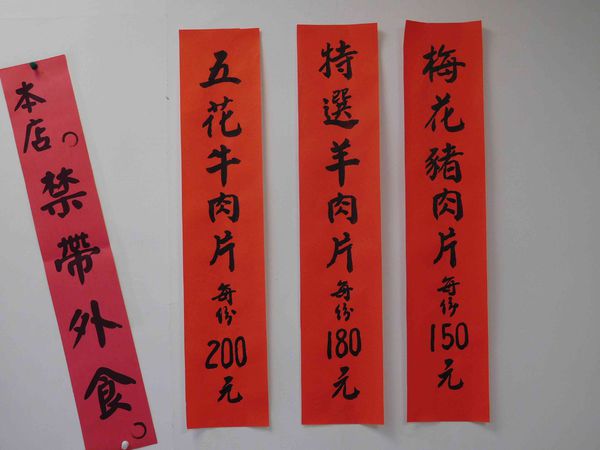 梅花豬肉片每份150元
特選羊肉片每份180元
五花牛肉片每份200元
本店。禁帶外食。